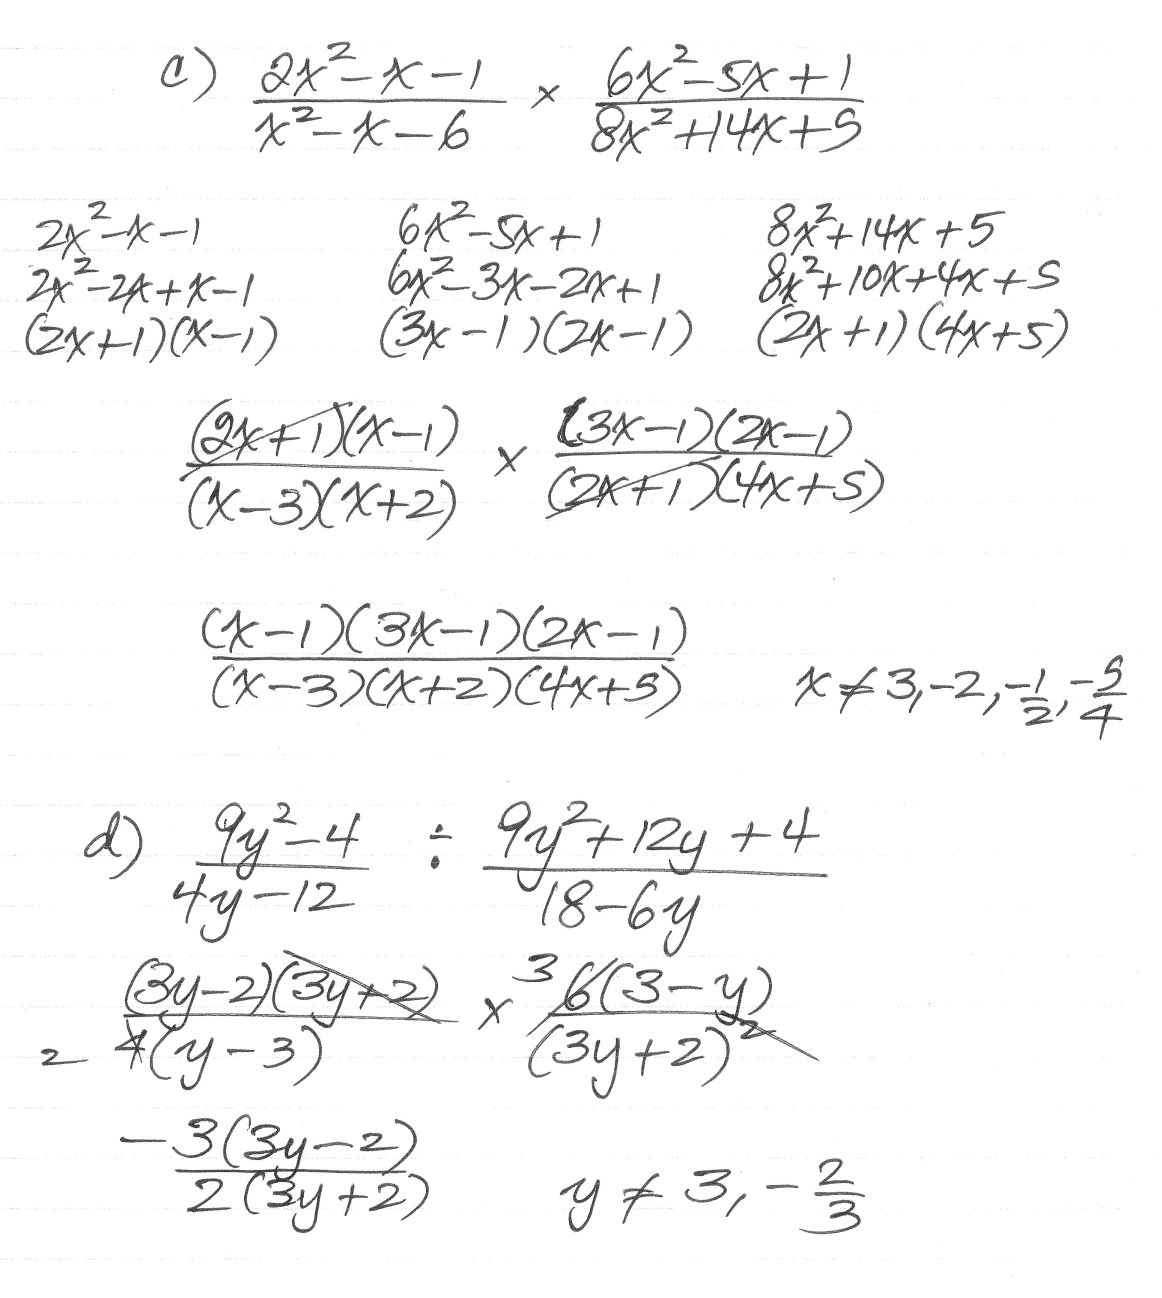 c) (2x²-x-1)/(x²-x-6) × (6x²-5x+1)/(8x²+14x+5)
2x²-x-1 6x²-5x+1 8x²+14x+5
2x²-2x+x-1 6x²-3x-2x+1 8x²+10x+4x+5
(2x+1)(x-1) (3x-1)(2x-1) (2x+1)(4x+5)
(2x+1)(x-1)/(x-3)(x+2) × (3x-1)(2x-1)/(2x+1)(4x+5)
(x-1)(3x-1)(2x-1)/(x-3)(x+2)(4x+5) x≠3,-2,-1/2,-5/4
d) (9y²-4)/(4y-12) ÷ (9y²+12y+4)/(18-6y)
(3y-2)(3y+2)/2 4(y-3) × 3 6(3-y)/(3y+2)²
-3(3y-2)/2(3y+2) y≠3,-2/3